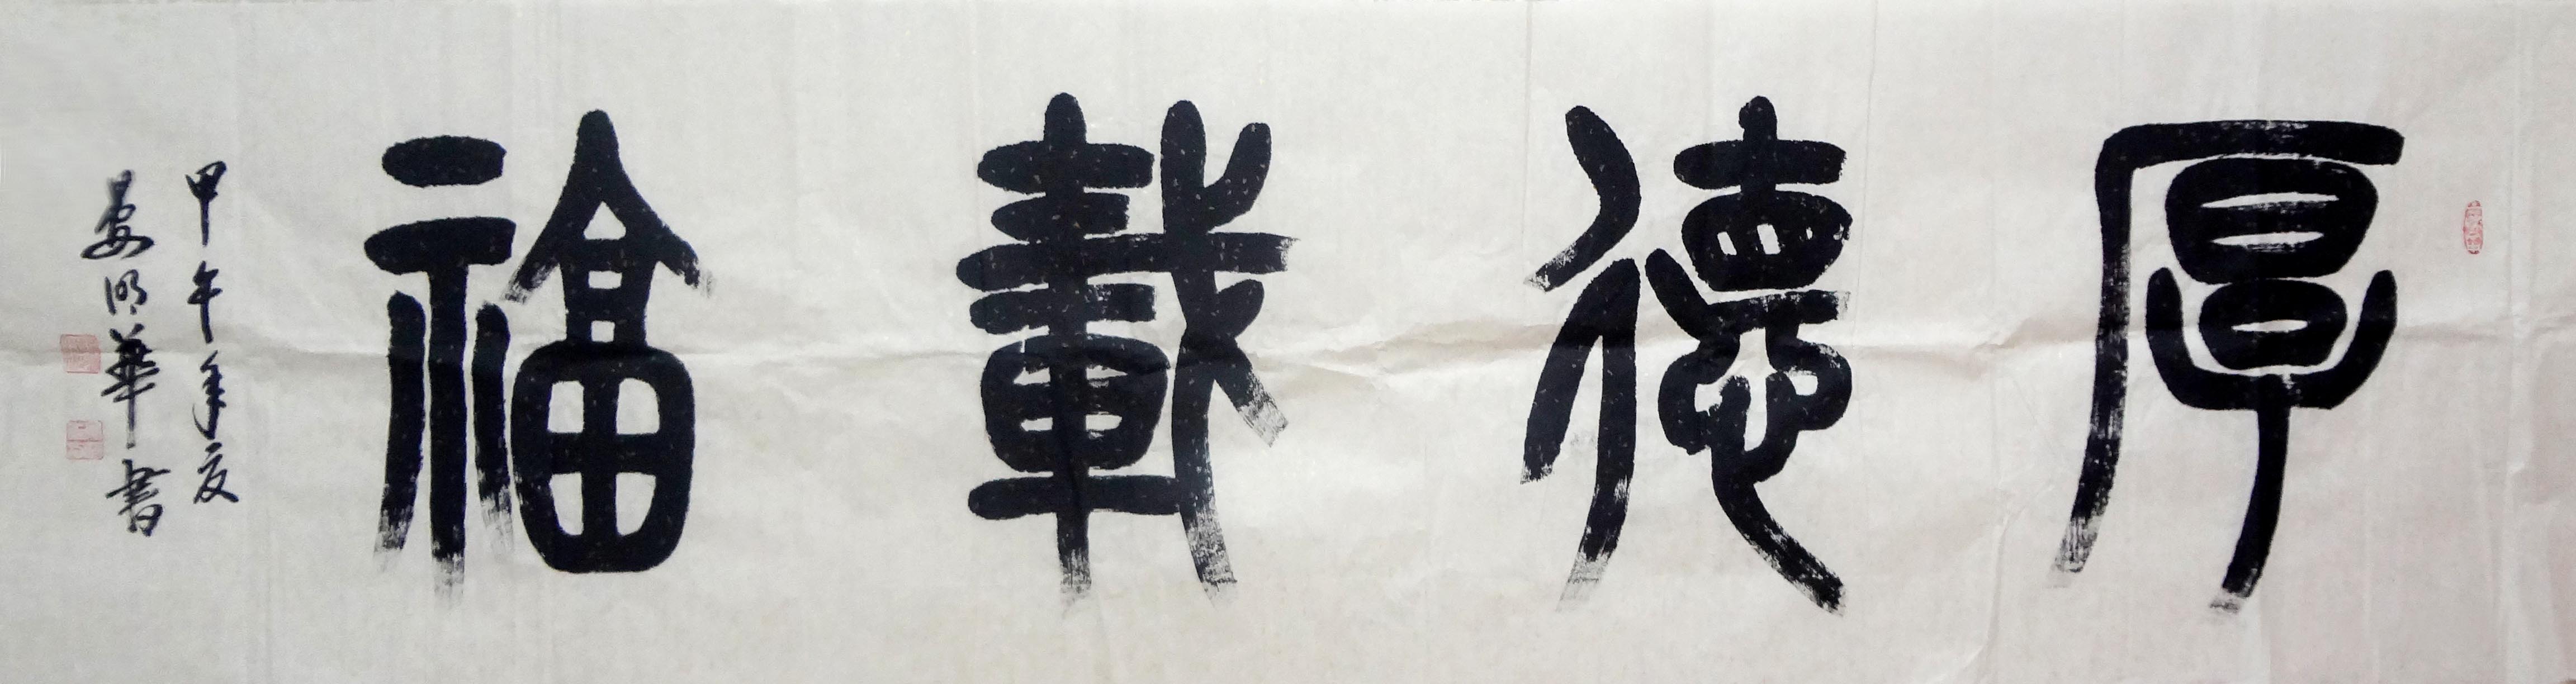 厚德載福
甲午年夏
娄明華書